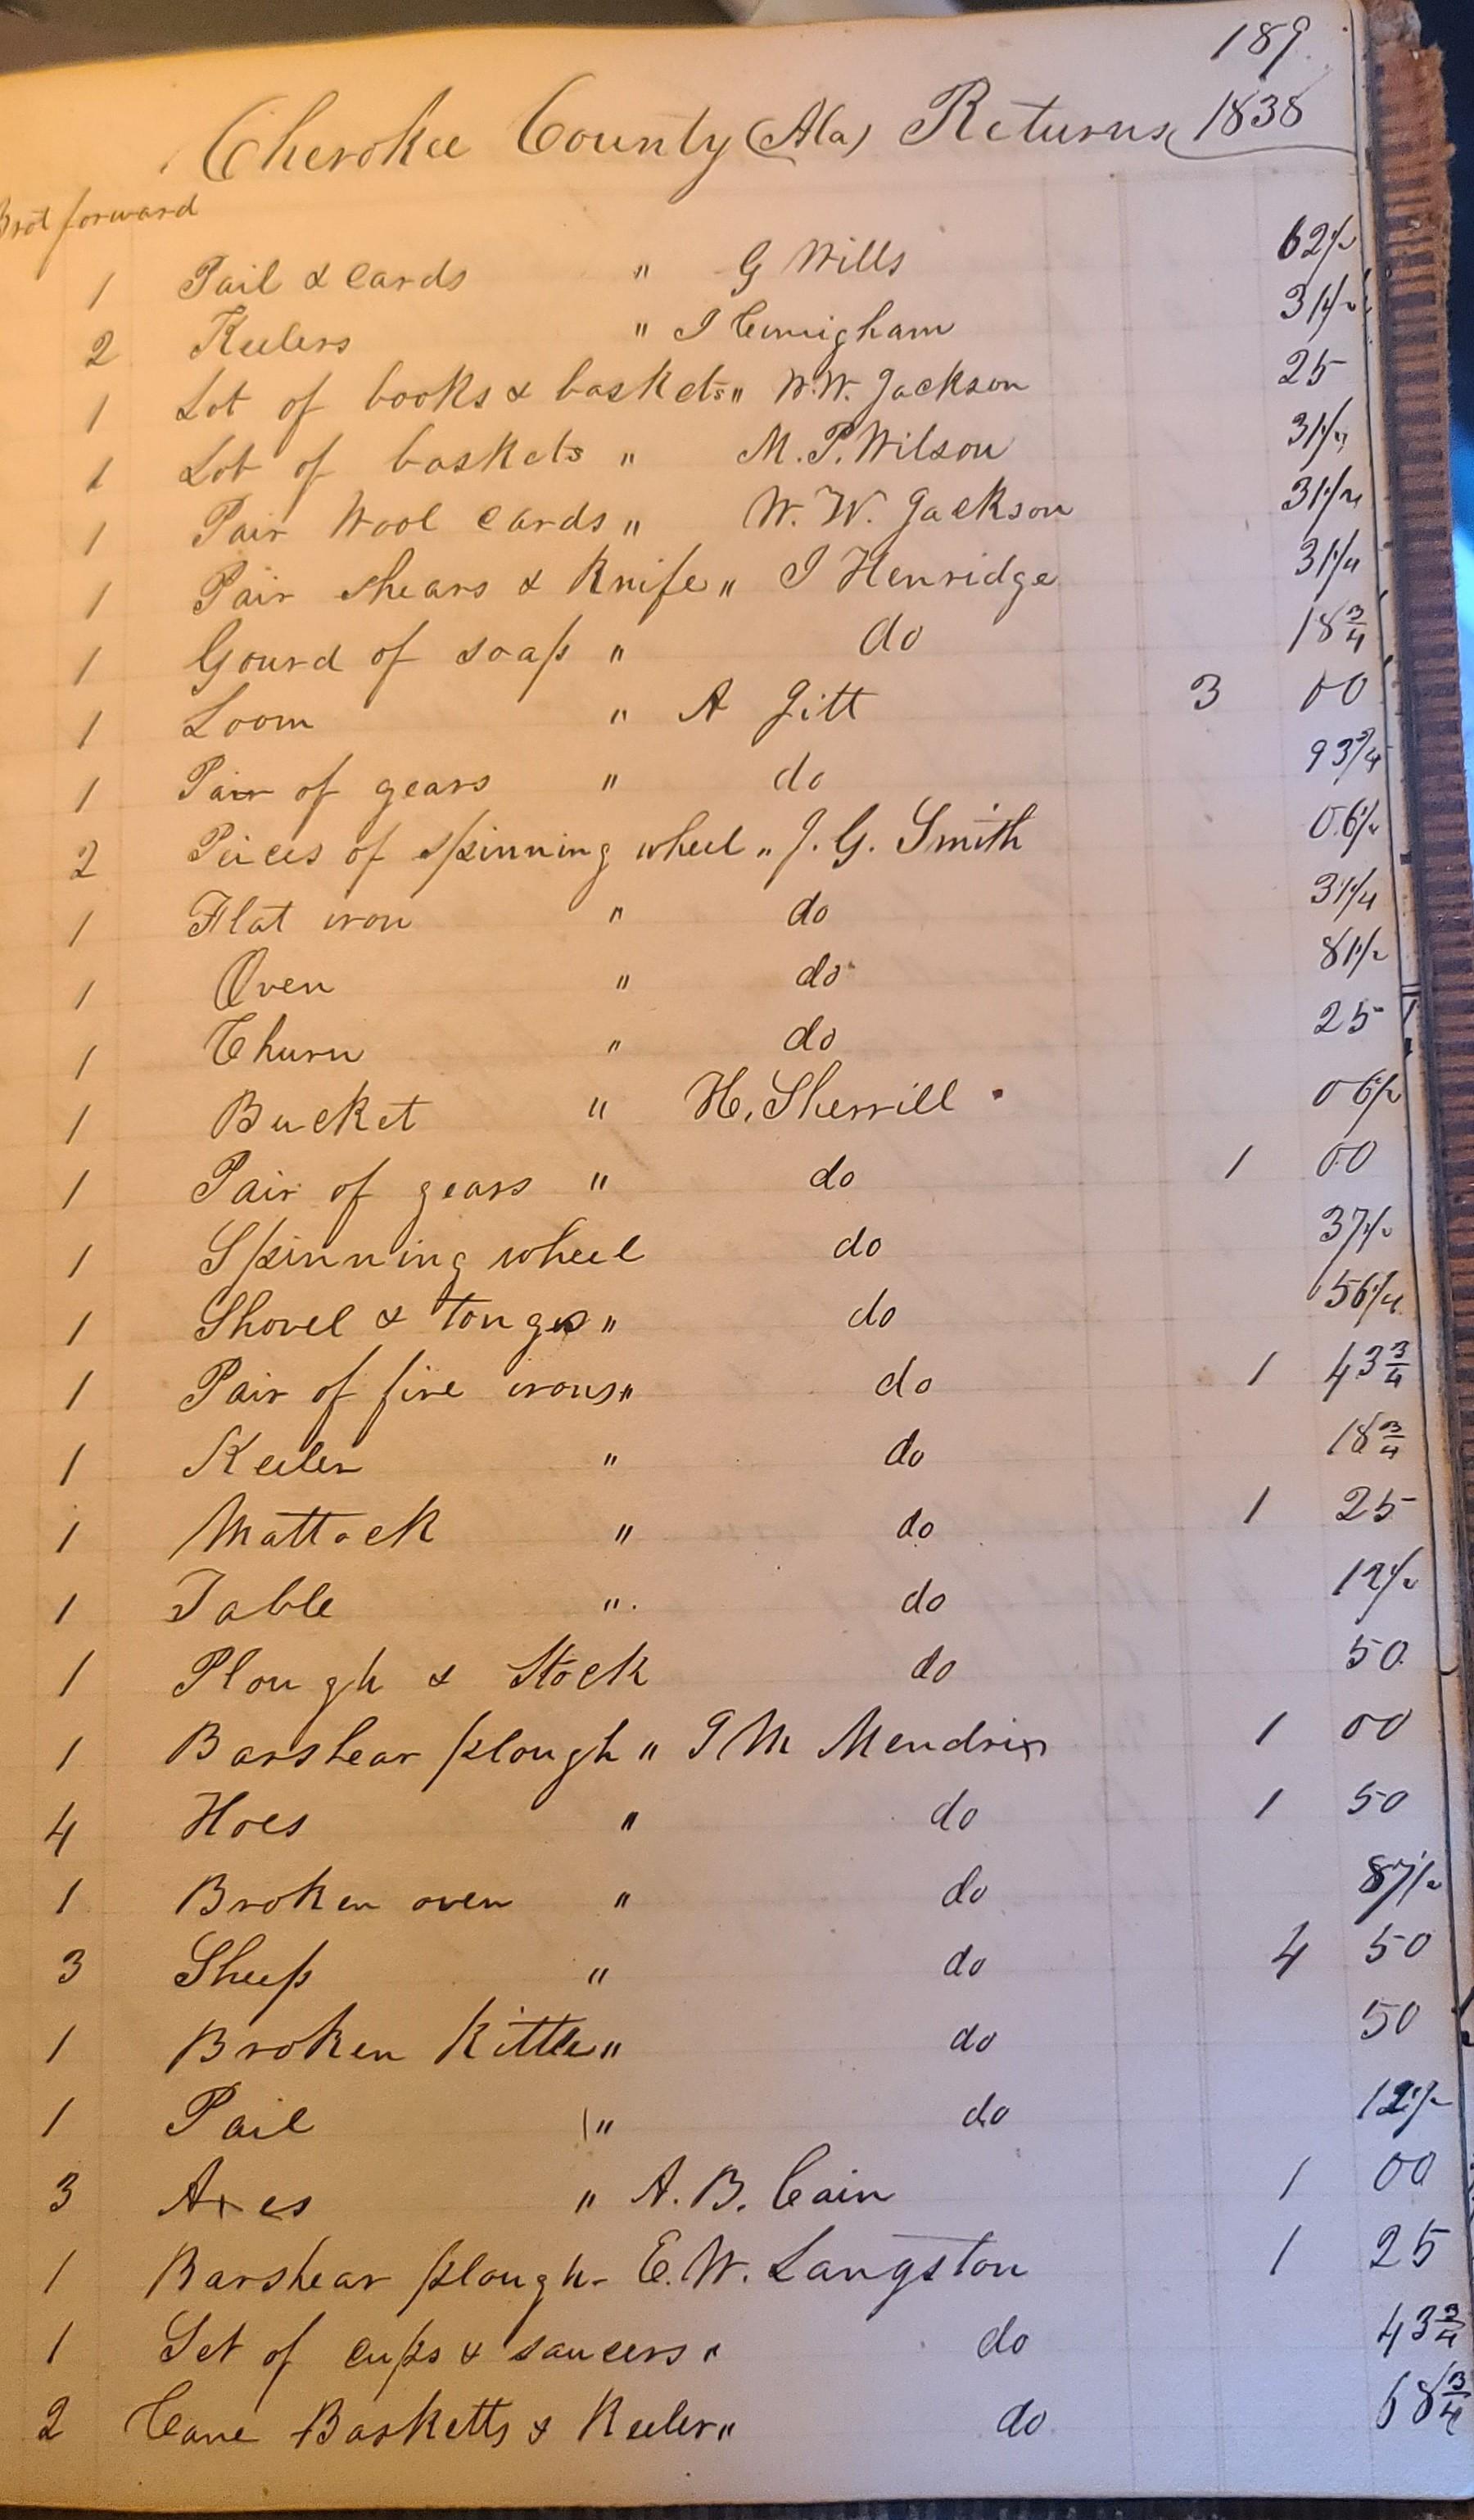 189
Cherokee County (Ala) Returns 1838
Brot forward
1 Pail & cards " G Wills 62½
2 Keelers " J Cunigham 31¼
1 Lot of books & baskets " W.W. Jackson 25
1 Lot of baskets " M.P. Wilson 31¼
1 Pair Wool cards " W.W. Jackson 31¼
1 Pair shears & Knife " J Henridge 31¼
1 Gourd of soap " do 18¾
1 Loom " A Gitt 3 00
1 Pair of gears " do 93¾
2 Peices of spinning wheel " J.G. Smith 06¼
1 Flat iron " do 31¼
1 Oven " do 81½
1 Churn " do 25
1 Bucket " H. Sherrill 06¼
1 Pair of gears " do 1 00
1 Spinning wheel do 37½
1 Shovel & tongs " do 56¼
1 Pair of fire irons " do 1 43¾
1 Keeler " do 18¾
1 Mattock " do 1 25
1 Table " do 12½
1 Plough & Stock do 50
1 Barshear plough " J M Mendrix 1 00
4 Hoes " do 1 50
1 Broken oven " do 87½
3 Sheep " do 4 50
1 Broken Kittle " do 50
1 Pail " do 12½
3 Axes " A.B. Cain 1 00
1 Barshear plough - E.W. Langston 1 25
1 Set of cups & saucers " do 43¾
2 Cane Basketts & Keeler " do 68¾